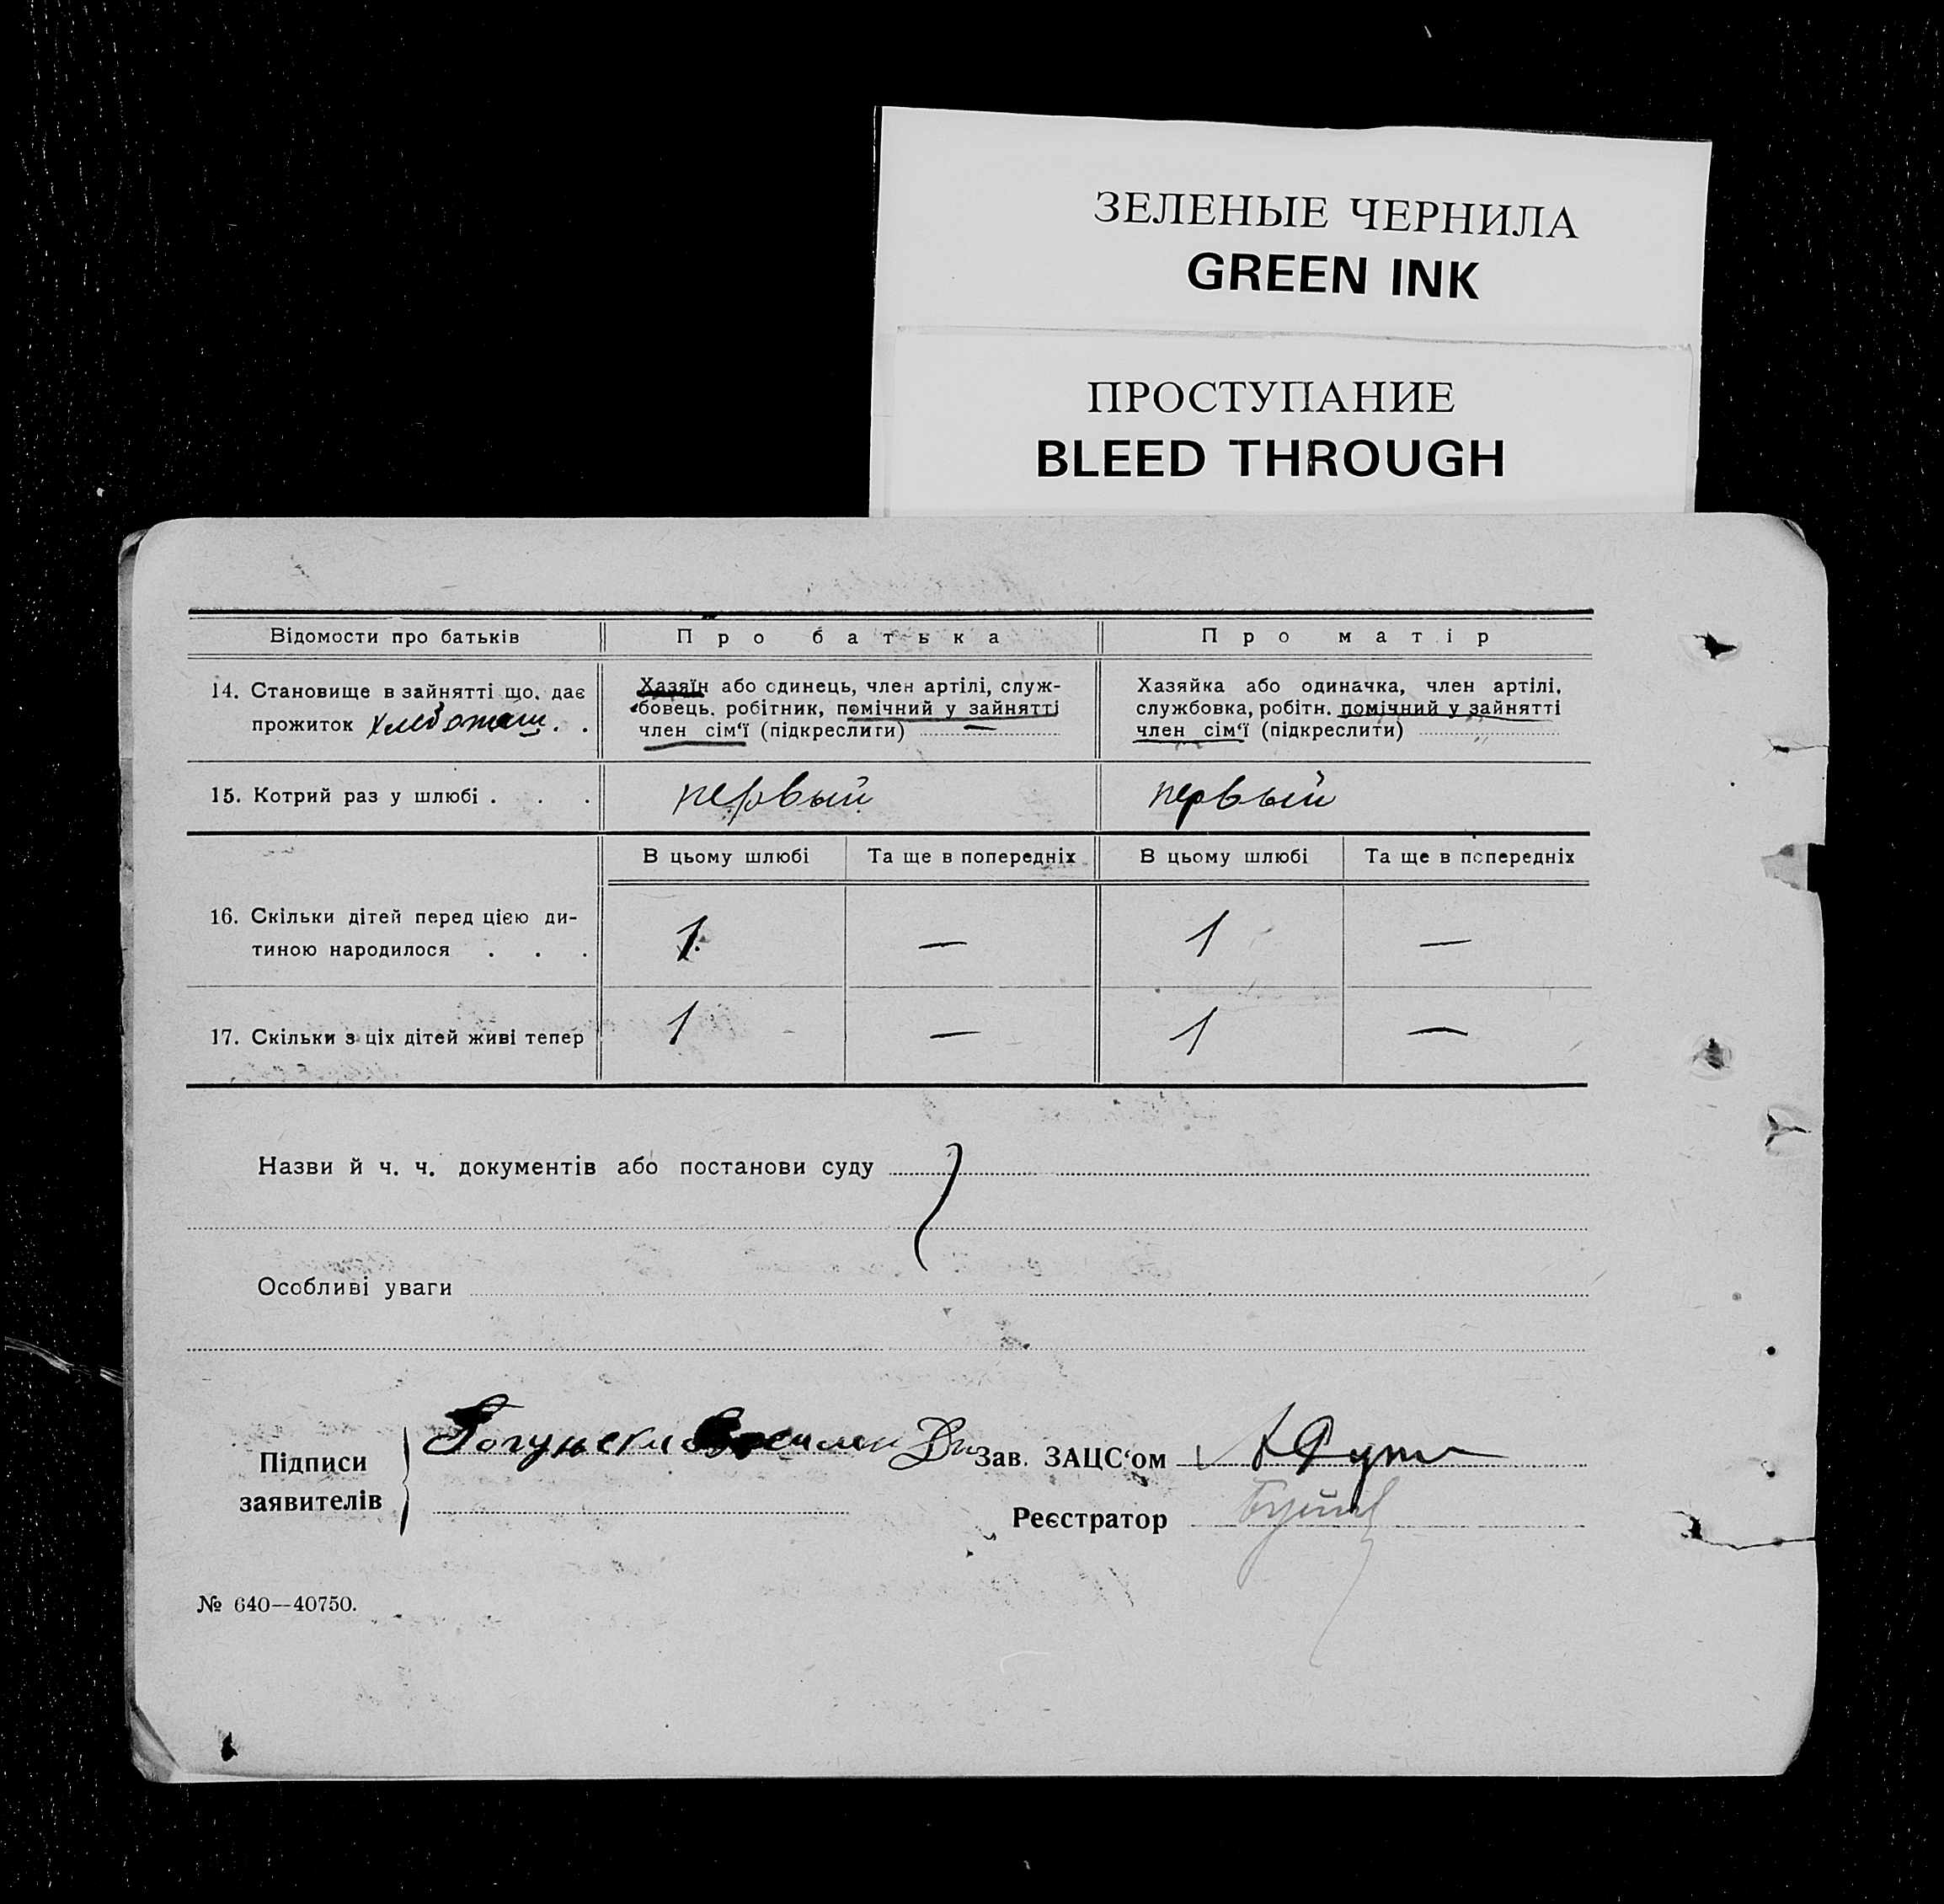 ЗЕЛЕНЫЕ ЧЕРНИЛА
GREEN INK
ПРОСТУПАНИЕ
BLEED THROUGH
Відомости про батьків Про батька Про матір
14. Становище в зайнятті що. дає
прожиток . .
Хазяїн або одинець, член артілі, служ-
бовець. робітник, помічний у зайнятті
член сім‘ї (підкреслити)
Хазяйка або одиначка, член артілі,
службовка, робітн. помічний у зайнятті
член сім‘ї (підкреслити)
15. Котрий раз у шлюбі . . . первый первый
В цьому шлюбі Та ще в попередніх В цьому шлюбі Та ще в попередніх
16. Скільки дітей перед цією ди-
тиною народилося . . . 1 — 1 —
17. Скільки з ціх дітей живі тепер 1 — 1 —
Назви й ч. ч. документів або постанови суду
Особливі уваги
Підписи
заявителів
Зав. ЗАЦС‘ом
Реєстратор
№ 640—40750.